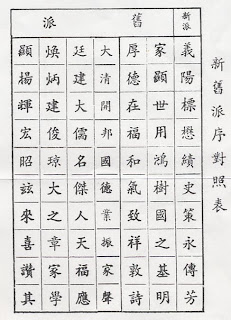 新舊派序對照表
新派
舊派
義陽標懋績史策永傳芳
家顯世用鴻樹國之基明
厚德在福和氣致祥敦詩
大清開邦國德業振家聲
廷建大儒名傑人天福應
煥炳建俊琼大之章家學
顯揚輝宏昭玆來喜讚其